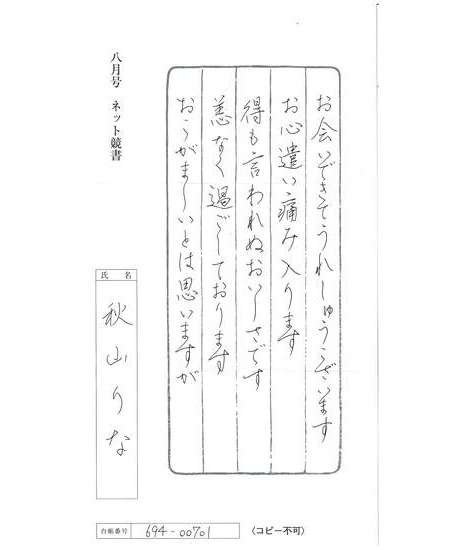 お会いできてうれしゅうございます
お心遣い痛み入ります
得も言われぬおいしさです
恙なく過ごしております
おこがましいとは思いますが
八月号 ネット競書
氏名
秋山りな
台帳番号 694-00701
(コピー不可)